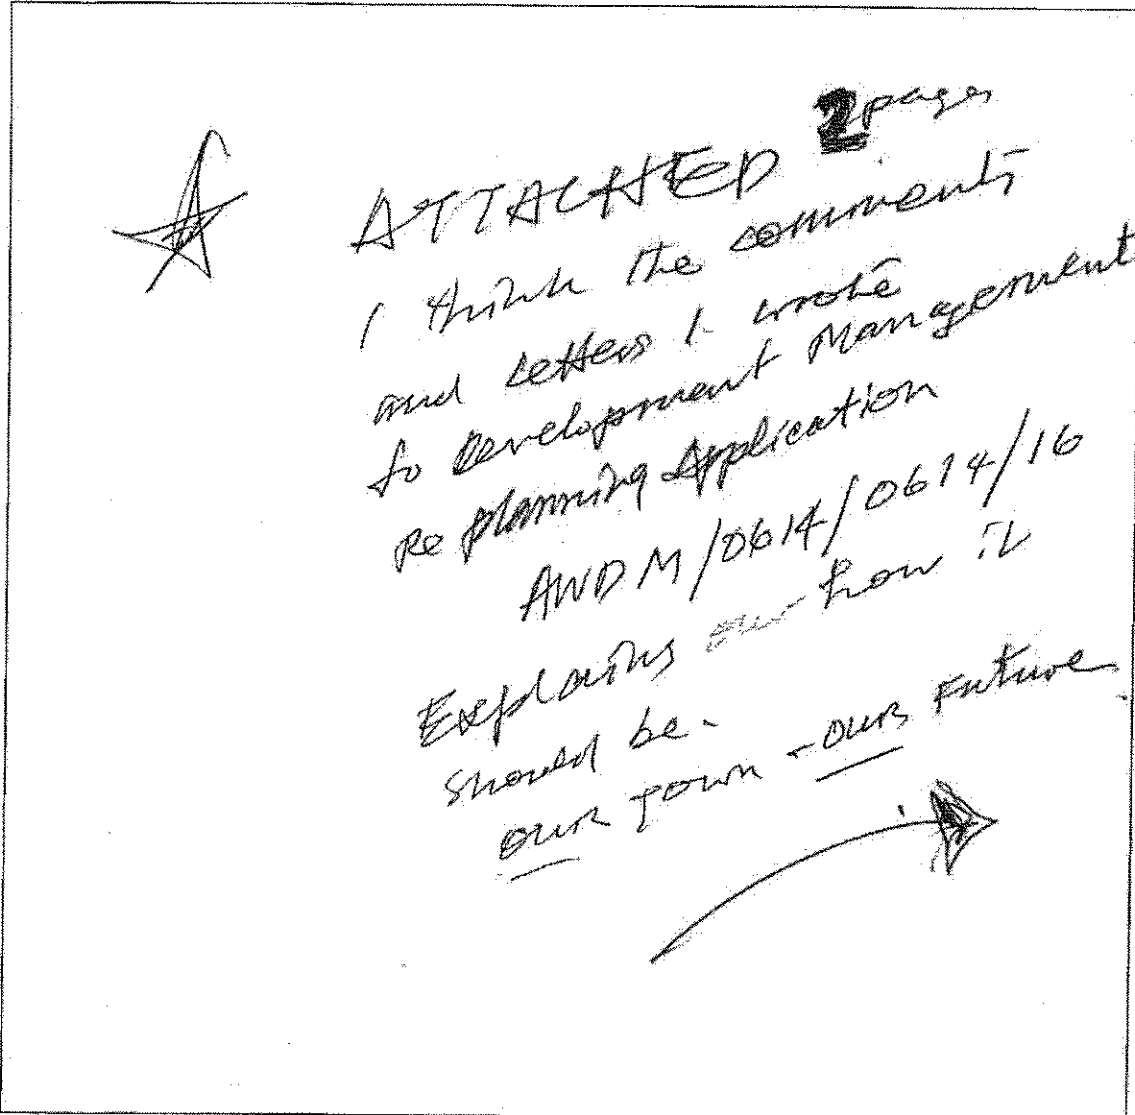 ATTACHED 2 pages
I think the comments
and letters I wrote
to Development Management
Re planning Application
AWDM/0614/0614/16
Explains how it
should be.
OUR TOWN - OUR FUTURE